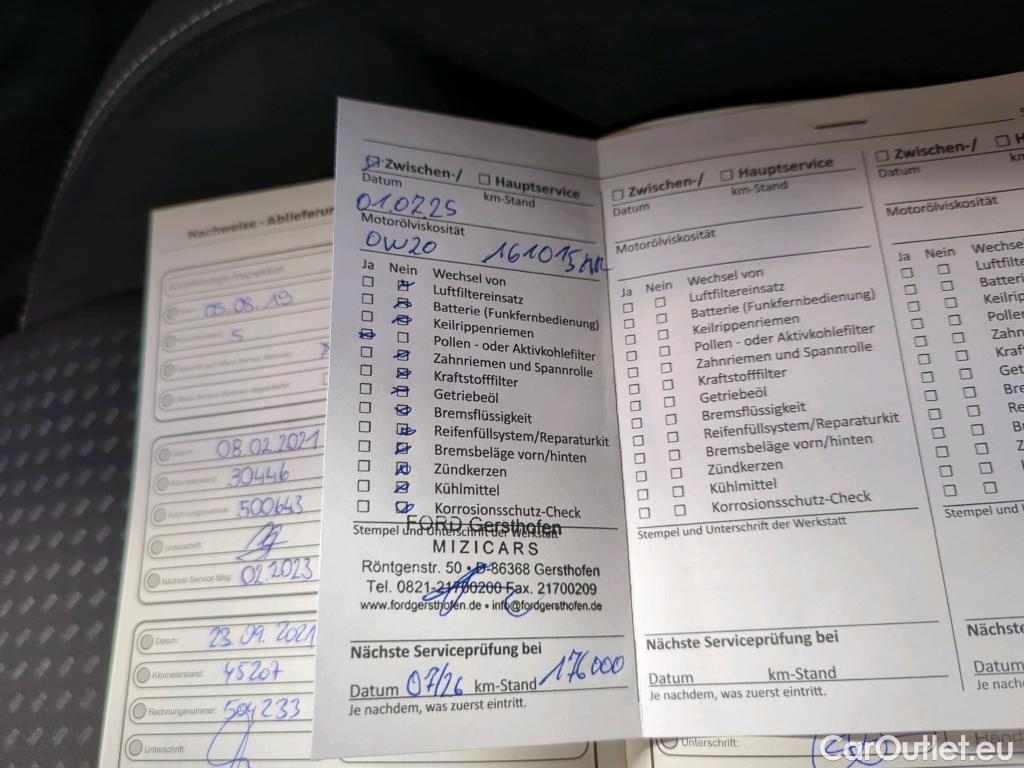 Nachweise - Ablieferun
Ablieferungs-Inspektion
05.08.19
5
Datum 08.02.2021
Kilometerstand: 30446
Rechnungsnummer: 500643
Unterschrift:
Nächste Service fällig: 02.2023
Datum: 23.09.2021
Kilometerstand: 45207
Rechnungsnummer: 504233
Unterschrift:
Zwischen-/ Hauptservice
Datum km-Stand
010725
Motorölviskosität
0W20 161015 km
Ja Nein Wechsel von
Luftfiltereinsatz
Batterie (Funkfernbedienung)
Keilrippenriemen
Pollen - oder Aktivkohlefilter
Zahnriemen und Spannrolle
Kraftstofffilter
Getriebeöl
Bremsflüssigkeit
Reifenfüllsystem/Reparaturkit
Bremsbeläge vorn/hinten
Zündkerzen
Kühlmittel
Korrosionsschutz-Check
Stempel und Unterschrift der Werkstatt
FORD Gersthofen
MIZICARS
Röntgenstr. 50 • D-86368 Gersthofen
Tel. 0821-21700200 Fax. 21700209
www.fordgersthofen.de • info@fordgersthofen.de
Nächste Serviceprüfung bei
Datum 07/26 km-Stand 176000
Je nachdem, was zuerst eintritt.
Zwischen-/ Hauptservice
Datum km-Stand
Motorölviskosität
Ja Nein Wechsel von
Luftfiltereinsatz
Batterie (Funkfernbedienung)
Keilrippenriemen
Pollen - oder Aktivkohlefilter
Zahnriemen und Spannrolle
Kraftstofffilter
Getriebeöl
Bremsflüssigkeit
Reifenfüllsystem/Reparaturkit
Bremsbeläge vorn/hinten
Zündkerzen
Kühlmittel
Korrosionsschutz-Check
Stempel und Unterschrift der Werkstatt
Nächste Serviceprüfung bei
Datum km-Stand
Je nachdem, was zuerst eintritt.
Unterschrift:
S
Zwischen-/ H
Datum km-
Motorölviskosität
Ja Nein Wechse
Luftfilte
Batteri
Keilrip
Pollen
Zahn
Kraf
Get
Bre
Re
B
Z
K
K
Stempel und U
Nächste
Datum
Je nach
Händ
CarOutlet.eu